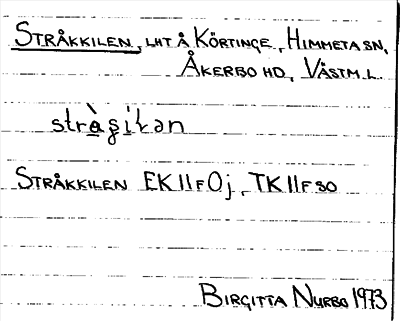 STRÅKKILEN, LHT Å KÖRTINGE, HIMMETA SN,
ÅKERBO HD, VÄSTM. L.
STRÅKKILEN EK 11 F 0j, TK 11 F SO
BIRGITTA NURBO 1973